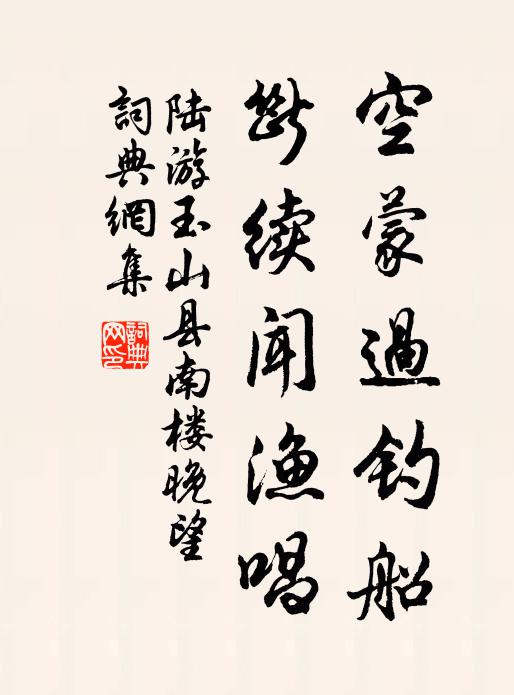 空蒙過钓船
斷续闻渔唱
陆游玉山县南楼晚望
詞典網集
詞典網印